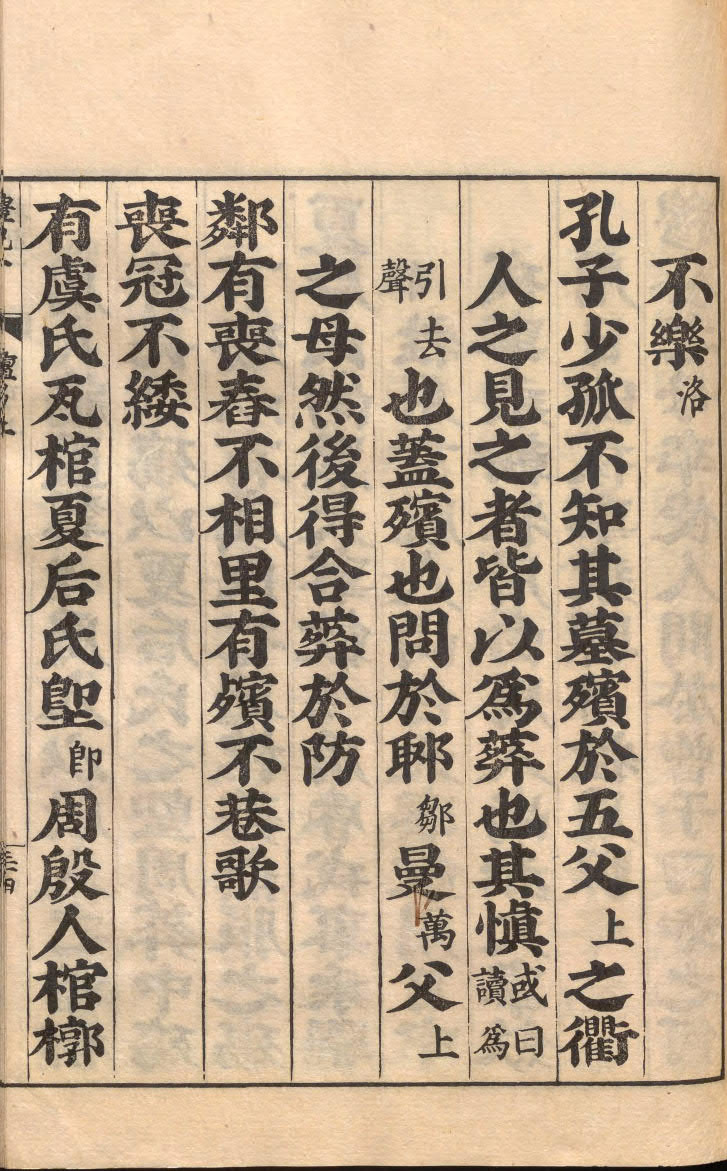 不樂洛
孔子少孤不知其墓殯於五父上之衢
人之見之者皆以爲葬也其愼或曰讀爲
引去聲也蓋殯也問於郰鄒曼萬父上
之母然後得合葬於防
鄰有喪舂不相里有殯不巷歌
喪冠不緌
有虞氏瓦棺夏后氏堲卽周殷人棺椁